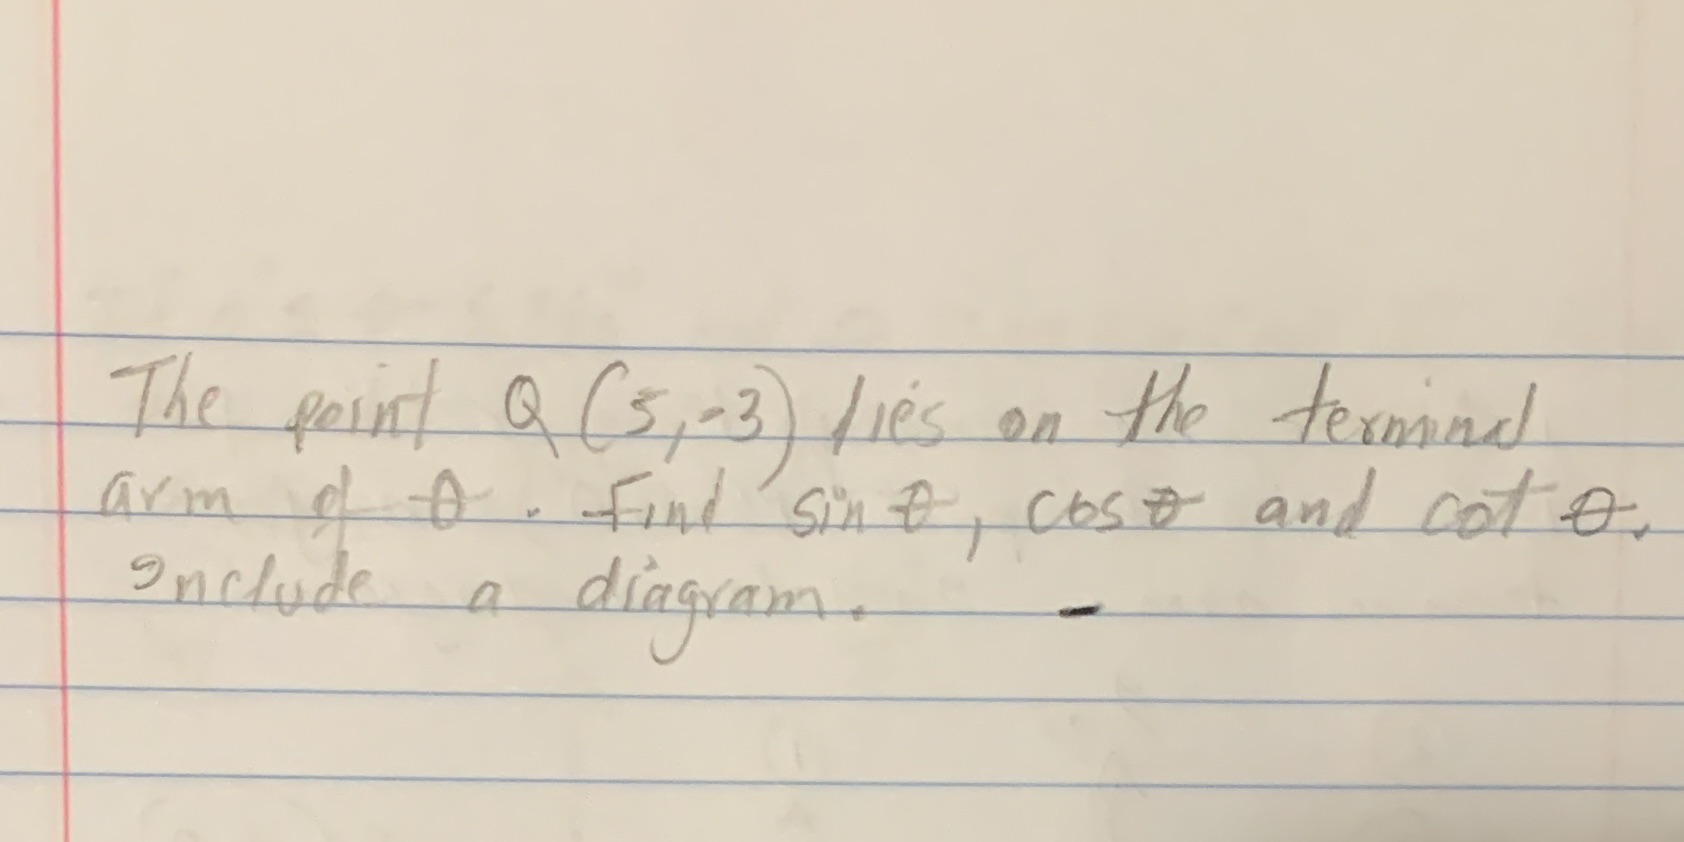 The point Q (5,-3) lies on the terminal
arm of θ. Find sin θ, cos θ and cot θ.
Include a diagram.